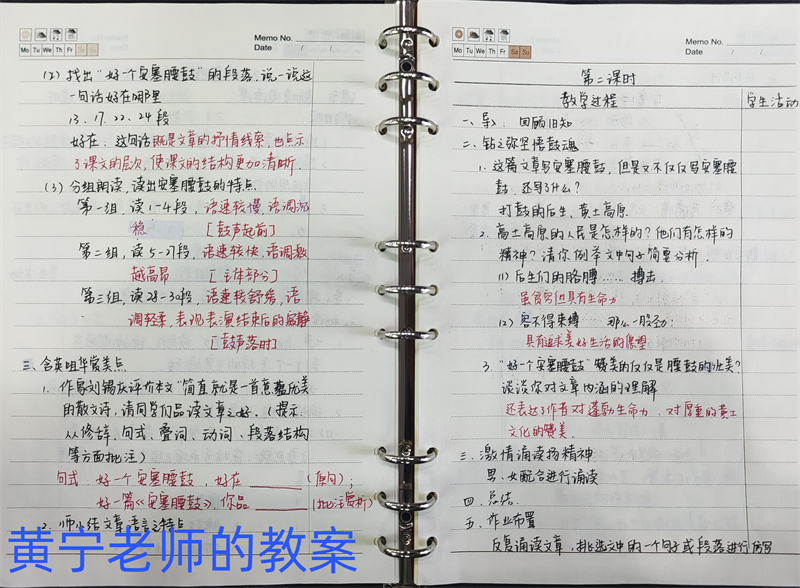 Memo No.
Mo Tu We Th Fr Sa Su
Date / /
(2) 找出“好一个安塞腰鼓”的段落,说一说这
一句话好在哪里
13、17、22、24段
好在:这句话既是文章的抒情线索,也点示
了课文的层次,使课文的结构更加清晰.
(3) 分组朗读,读出安塞腰鼓的特点.
第一组,读1-4段,语速较慢,语调沉
稳 [鼓声起前]
第二组,读5-27段,语速较快,语调激
越高昂 [主体部分]
第三组,读28-30段,语速较舒缓,语
调轻柔,表现表演结束后的寂静
[鼓声落时]
三、含英咀华赏美点
1. 作家刘锡庆评价本文“简直就是一首意蕴优美
的散文诗,请同学们品读文章之好.(提示
从修辞、句式、叠词、动词、段落结构
等方面批注)
句式:好一个安塞腰鼓,好在____(原句);
好一篇《安塞腰鼓》,你品____(批注赏析)
2. 师小结文章语言之特点
黄宁老师的教案
Memo No.
Mo Tu We Th Fr Sa Su
Date / /
第二课时
教学过程 学生活动
一、导入:回顾旧知
二、钻之弥坚悟鼓魂
1. 这篇文章写安塞腰鼓,但是又不仅仅写安塞腰
鼓,还写了什么?
打鼓的后生、黄土高原
2. 高土高原的人民是怎样的?他们有怎样的
精神?请你例举文中句子简要分析.
(1) 后生们的胳膊……搏击.
虽贫穷但具有生命力
(2) 容不得束缚……那么一股劲:
具有追求美好生活的愿望
3. “好一个安塞腰鼓”赞美的仅仅是腰鼓的壮美?
谈谈你对文章内涵的理解
还表达了作者对蓬勃生命力、对厚重的黄土
文化的赞美.
三、激情诵读扬精神
男、女配合进行诵读
四、总结
五、作业布置
反复诵读文章,挑选文中的一个句子或段落进行仿写